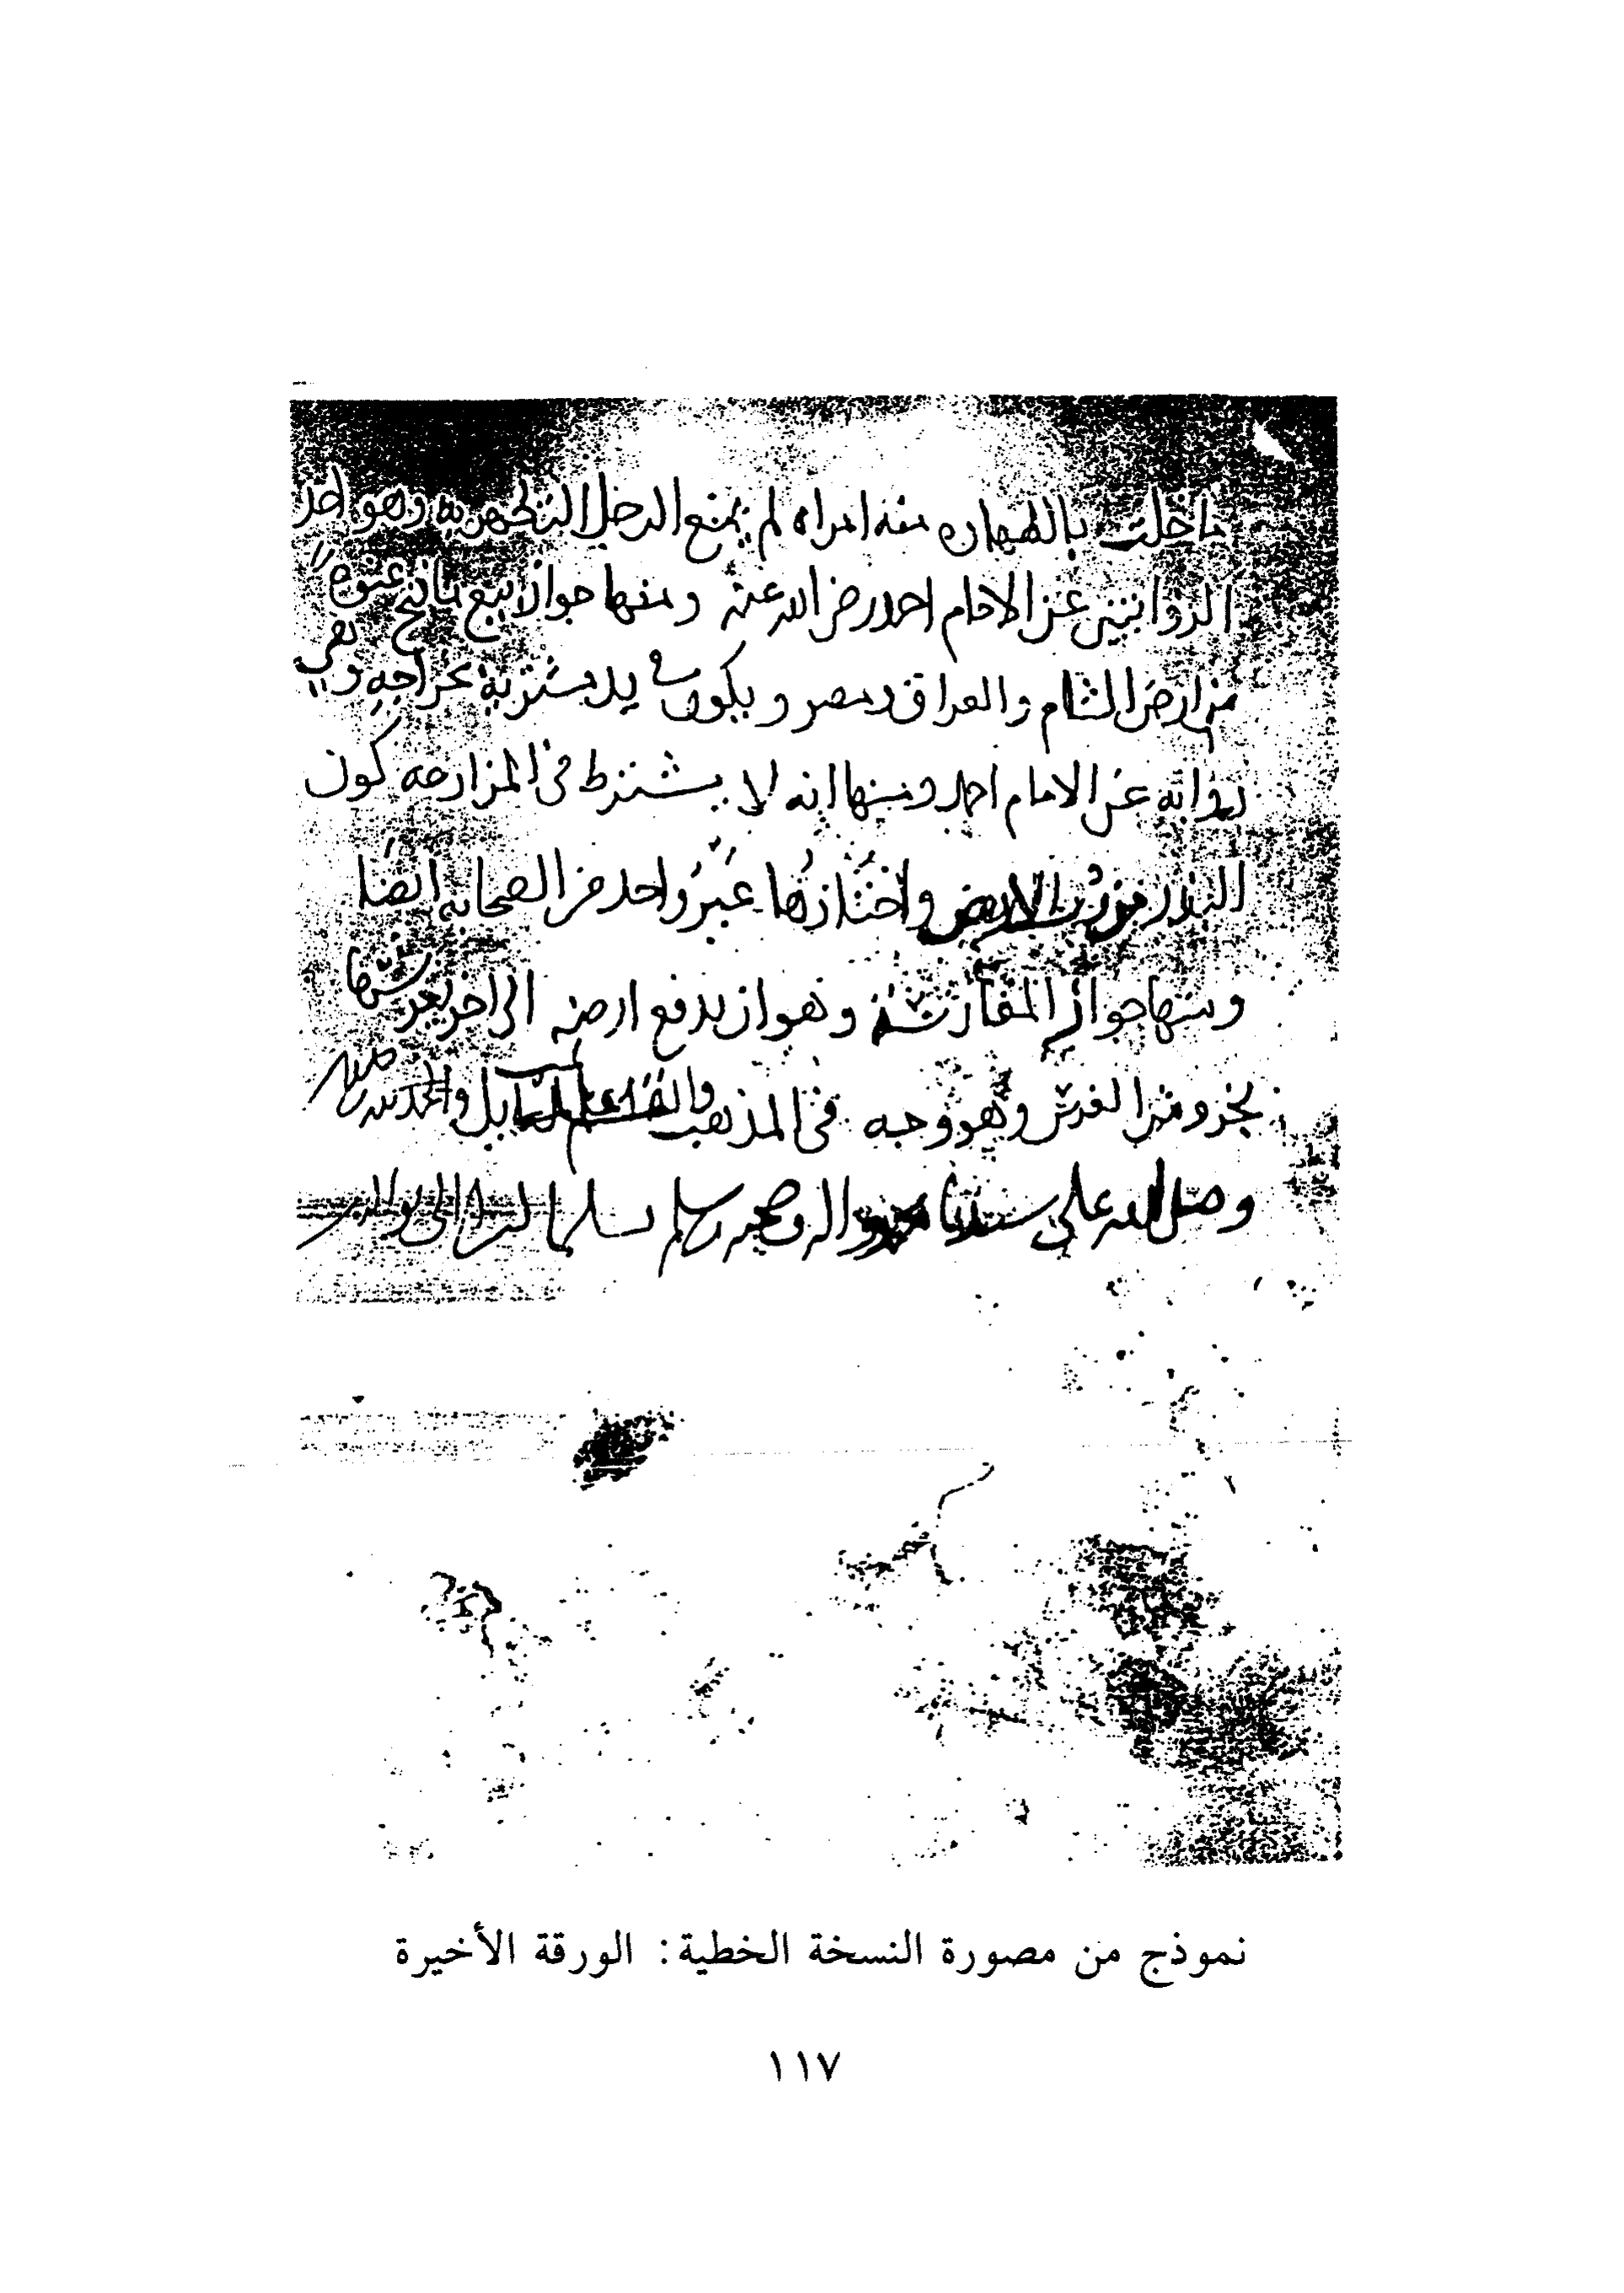 ما خلت بالطهاره منه امراه لم يمنع الرجل التطهر به وهو احد
الروايتين عن الامام احمد رضي الله عنه ومنها جواز بيع ما فتح عنوه
من ارض الشام والعراق ومصر ويكون في يد مشتريه بخراجه وفي
رواية عن الامام احمد ومنها انه لا يشترط في المزارعه كون
البذر من رب الارض واختارها غير واحد من الصحابه ايضا
ومنها جواز المغارسة وهو ان يدفع ارضه الى اخر يغرسها
بجزو من الغرس وهو وجه في المذهب والله اعلم والحمد لله
وصلى الله على سيدنا محمد واله وصحبه وسلم تسليما كثيرا الى يوم الدين
نموذج من مصورة النسخة الخطية: الورقة الأخيرة
١١٧